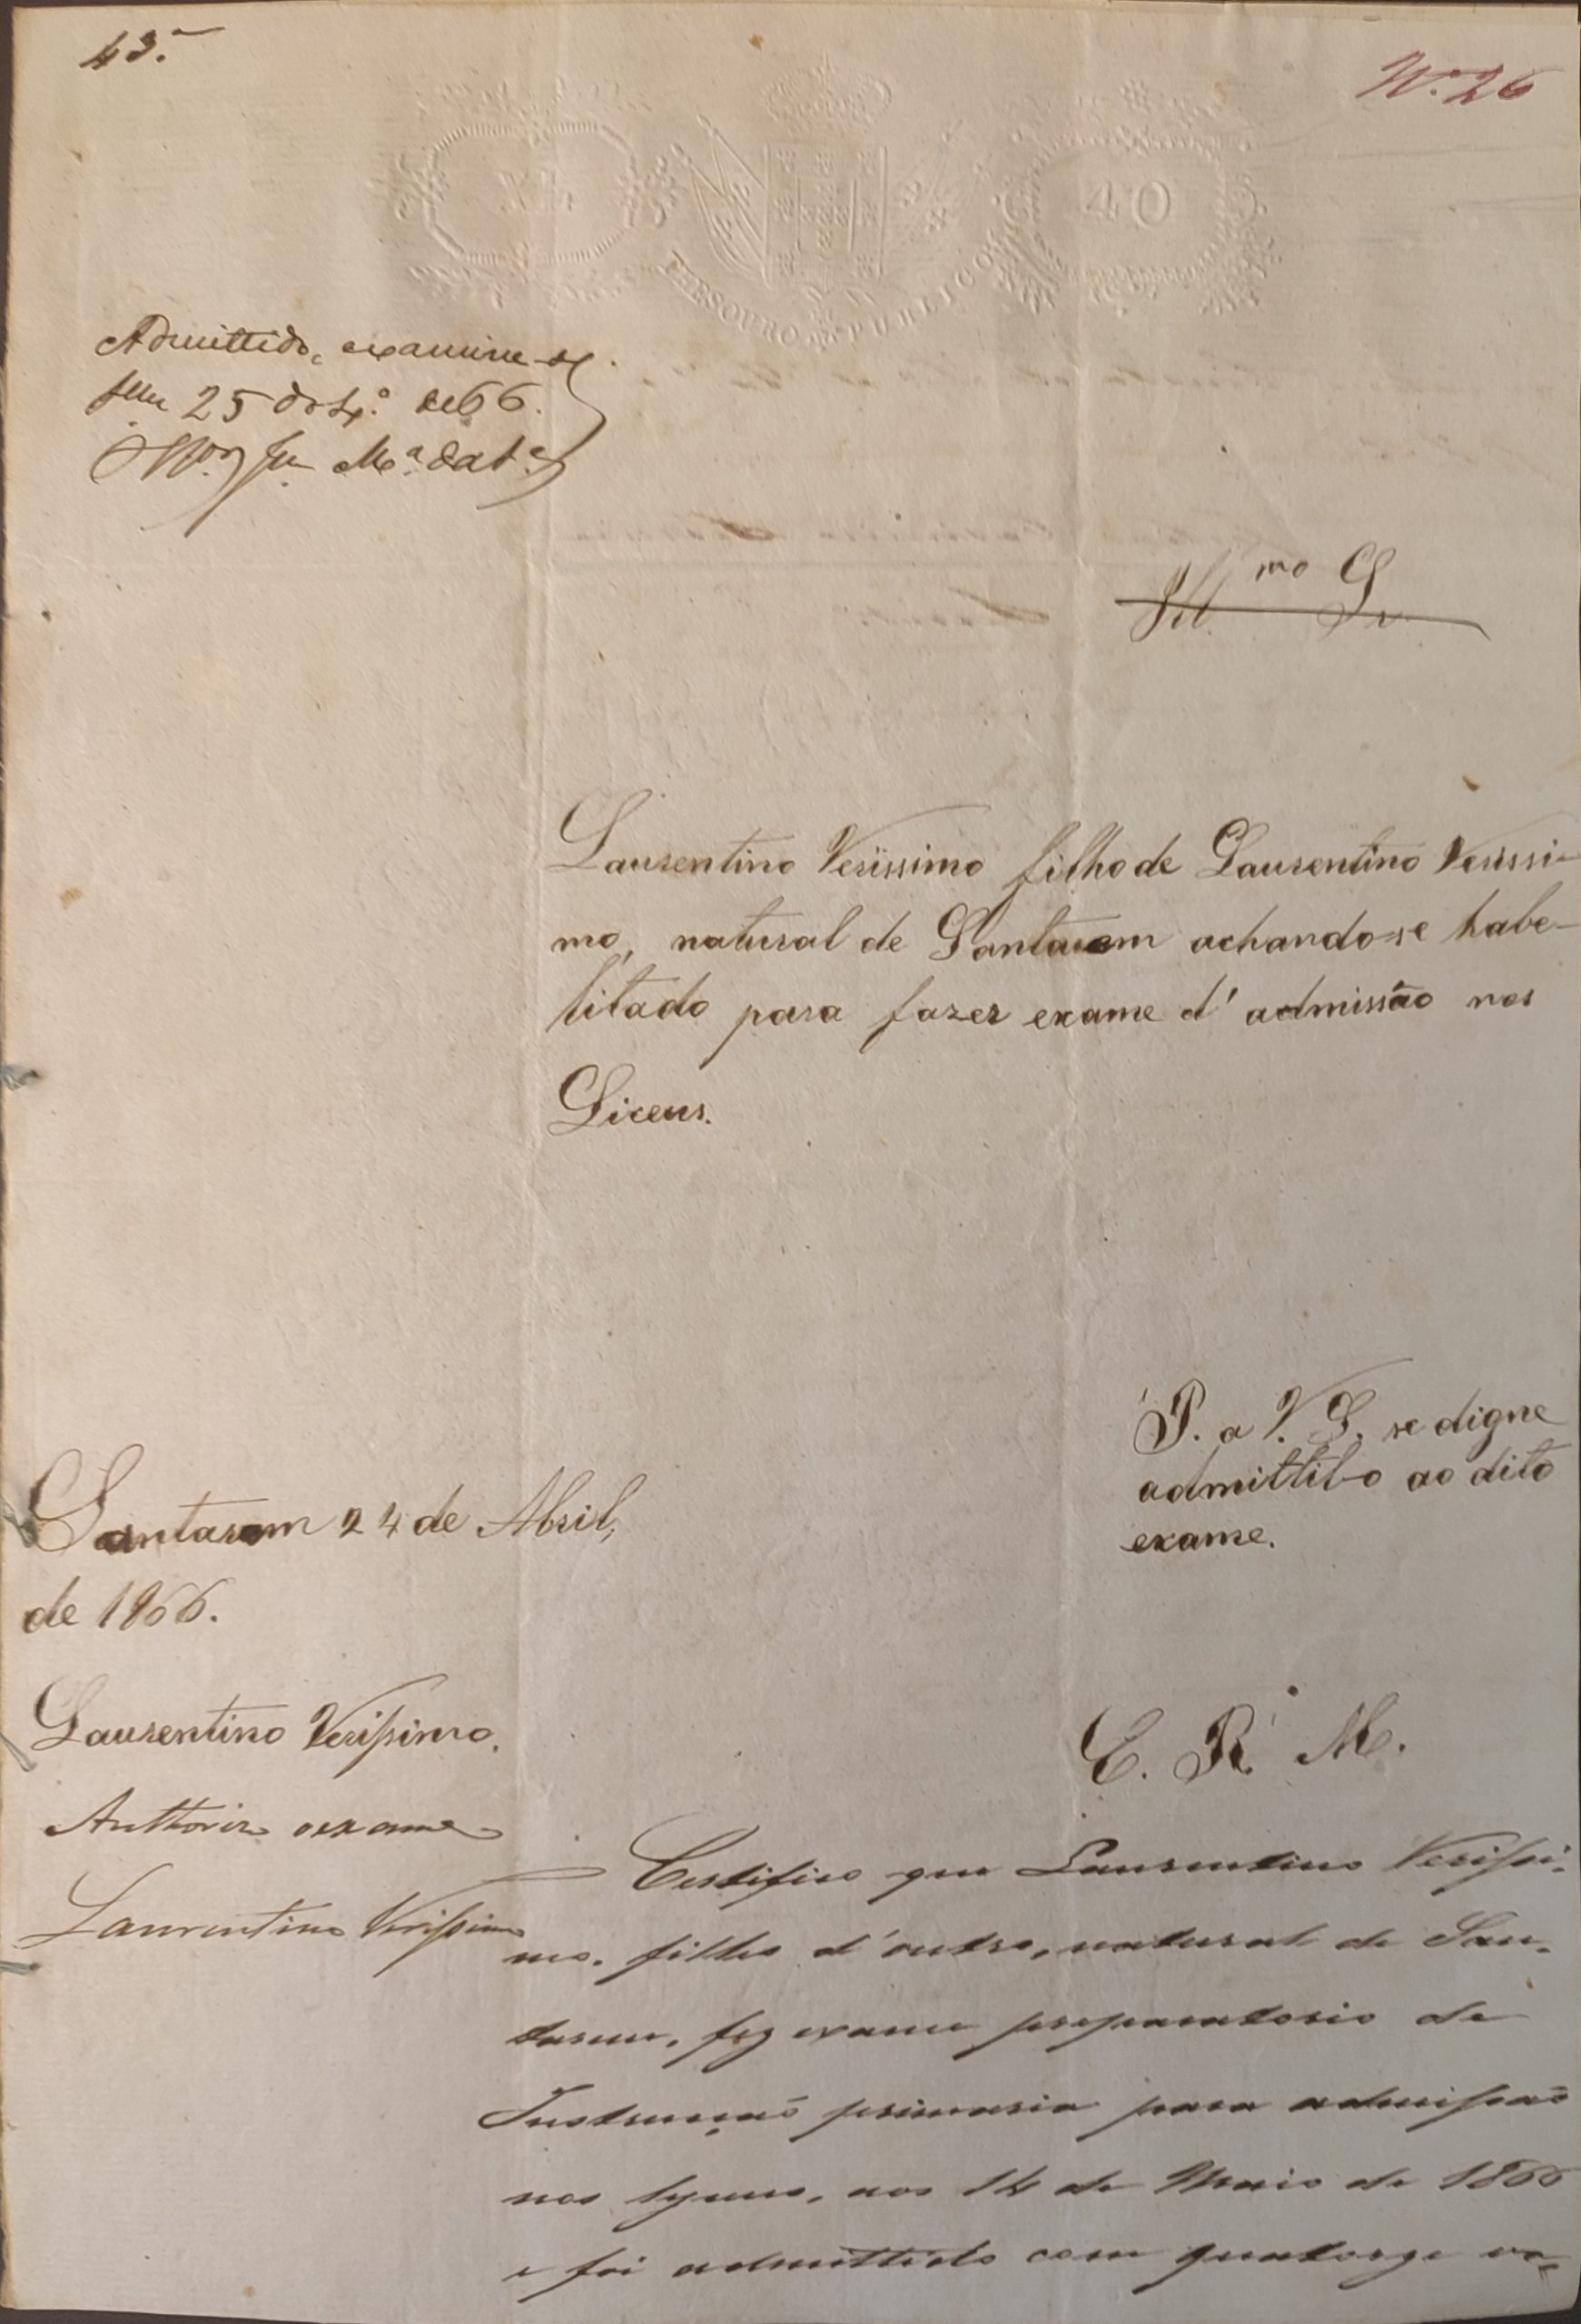 43.
Nº 26
XL
40
THESOURO PUBLICO
Admittido, examine-se.
25 de 66.
Ill.mo Sr.
Laurentino Verissimo filho de Laurentino Verissi-
mo, natural de Santarem achando-se habe-
litado para fazer exame d'admissão nos
Liceus.
P. a V. S. se digne
admittil-o ao dito
exame.
Santarem 24 de Abril,
de 1866.
Laurentino Verissimo.
E. R. M.
Authoriso o exame
Laurentino Verissimo
Certifico que Laurentino Verissi-
mo, filho d'outro, natural de San-
tarem, fez exame preparatorio de
Instrucção primaria para admissão
nos lyceus, aos 14 de Maio de 1866
e foi admittido com quatorze va-